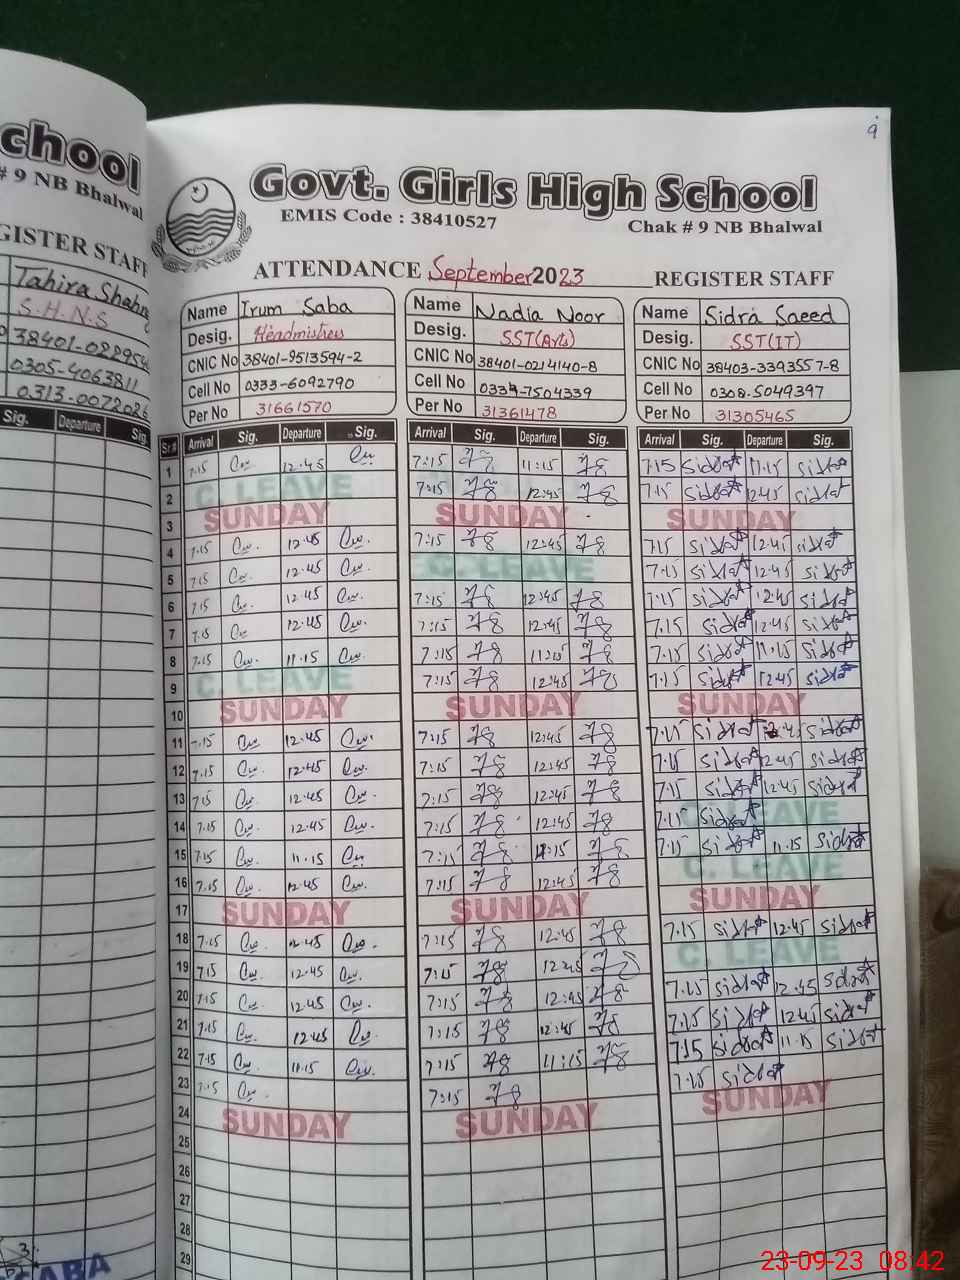 chool
# 9 NB Bhalwal
GISTER STAFF
Tahira Shahn
S.H.N.S
0305-4063811
0313-0072026
Sig. Departure Sig.
9
Govt. Girls High School
EMIS Code : 38410527
Chak # 9 NB Bhalwal
ATTENDANCE September 2023 REGISTER STAFF
Name Irum Saba Name Nadia Noor Name Sidra Saeed
Desig. Headmistress Desig. SST(Arts) Desig. SST(IT)
CNIC No 38401-9513594-2 CNIC No 38401-0214140-8 CNIC No 38403-3393557-8
Cell No 0333-6092790 Cell No 0334-7504339 Cell No 0308-5049397
Per No 31661570 Per No 31361478 Per No 31305465
Sr.# Arrival Sig. Departure Sig. Arrival Sig. Departure Sig. Arrival Sig. Departure Sig.
1 7.15 12.45 7:15 11:15 7.15 Sidrat 11.15 Sidrat
2 C. LEAVE 7:15 12:45 7.15 Sidrat 12.45 Sidrat
3 SUNDAY SUNDAY SUNDAY
4 7.15 12.45 7:15 12:45 7.15 Sidrat 12.45 Sidrat
5 7.15 12.45 C. LEAVE 7.15 Sidrat 12.45 Sidrat
6 7.15 12.45 7:15 12:45 7.15 Sidrat 12.45 Sidrat
7 7.15 12.45 7:15 12:45 7.15 Sidrat 12.45 Sidrat
8 7.15 11.15 7:15 11:15 7.15 Sidrat 11.15 Sidrat
9 C. LEAVE 7:15 12:45 7.15 Sidrat 12.45 Sidrat
10 SUNDAY SUNDAY SUNDAY
11 7.15 12.45 7:15 12:45 7.15 Sidrat 12.45 Sidrat
12 7.15 12.45 7:15 12:45 7.15 Sidrat 12.45 Sidrat
13 7.15 12.45 7:15 12:45 7.15 Sidrat 12.45 Sidrat
14 7.15 12.45 7:15 12:45 7.15 Sidrat C. LEAVE
15 7.15 11.15 7:15 11:15 7.15 Sidrat 11.15 Sidrat
16 7.15 12.45 7:15 12:45 C. LEAVE
17 SUNDAY SUNDAY SUNDAY
18 7.15 12.45 7:15 12:45 7.15 Sidrat 12.45 Sidrat
19 7.15 12.45 7:15 12:45 C. LEAVE
20 7.15 12.45 7:15 12:45 7.15 Sidrat 12.45 Sidrat
21 7.15 12.45 7:15 12:45 7.15 Sidrat 12.45 Sidrat
22 7.15 11.15 7:15 11:15 7.15 Sidrat 11.15 Sidrat
23 7.15 7:15 7.15 Sidrat
24 SUNDAY SUNDAY SUNDAY
25
26
27
28
29
SABA
23-09-23 08:42